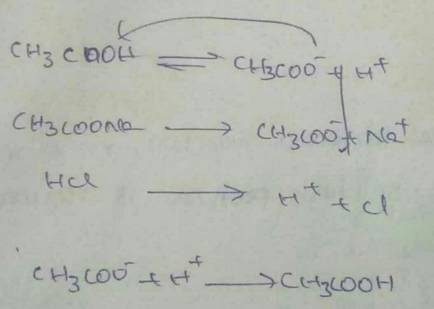 CH3COOH ⇌ CH3COO⁻ + H⁺
CH3COONa → CH3COO⁻ + Na⁺
HCl → H⁺ + Cl
CH3COO⁻ + H⁺ → CH3COOH